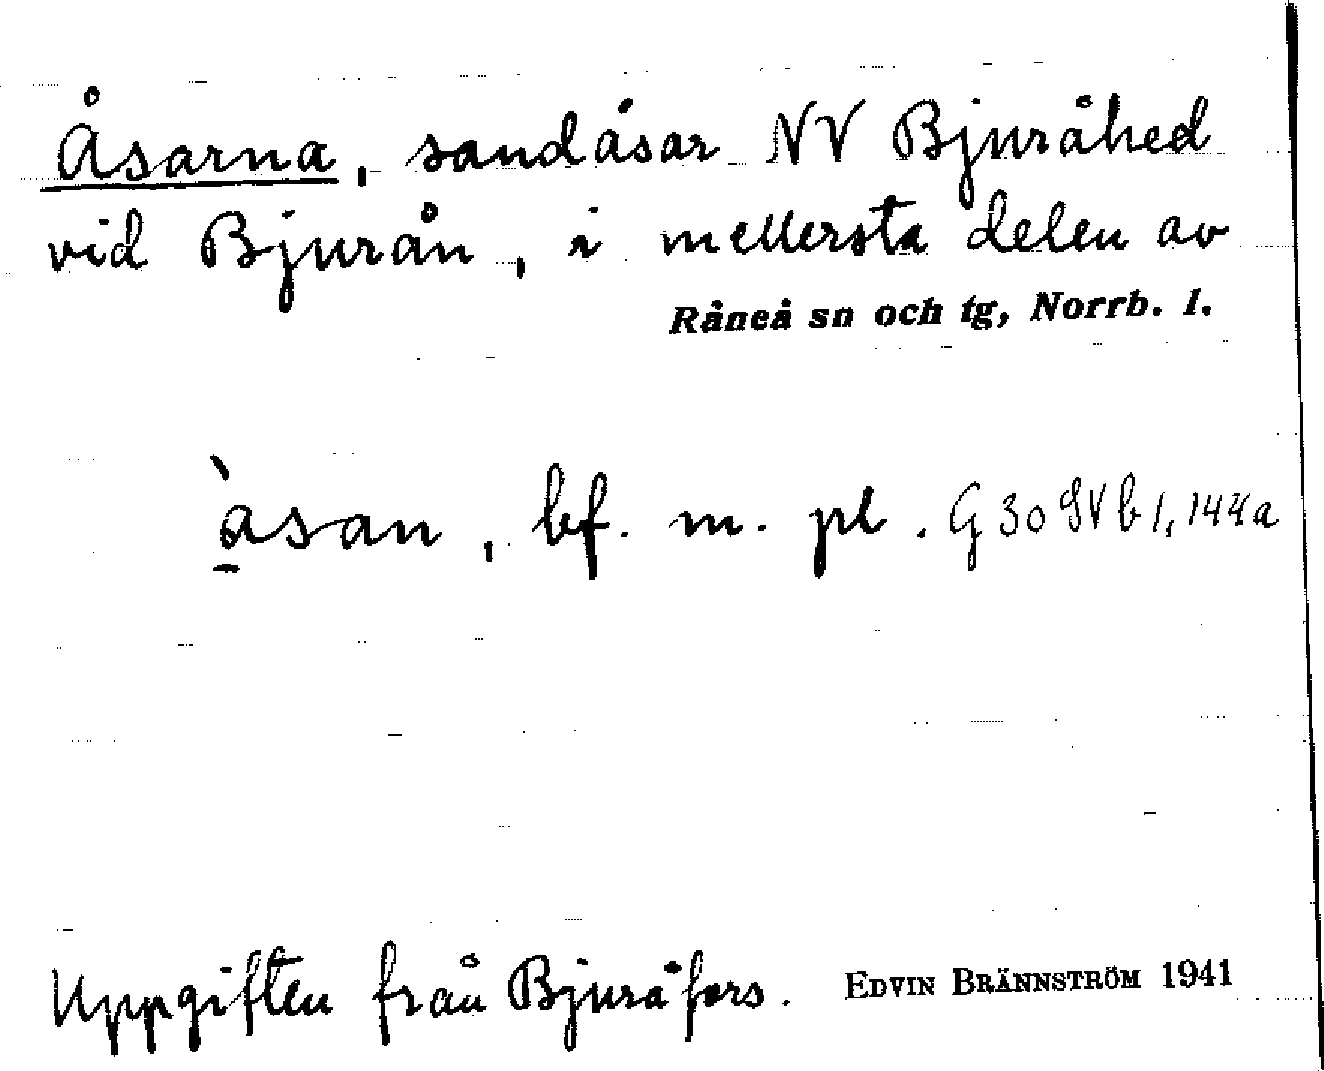 Åsarna, sandåsar NV Bjuråhed
vid Bjurån, i mellersta delen av
Råneå sn och tg, Norrb. l.
`a̱san, bf. m. pl. G 30 SV b 1, 144a
Uppgiften från Bjuråfors. EDVIN BRÄNNSTRÖM 1941